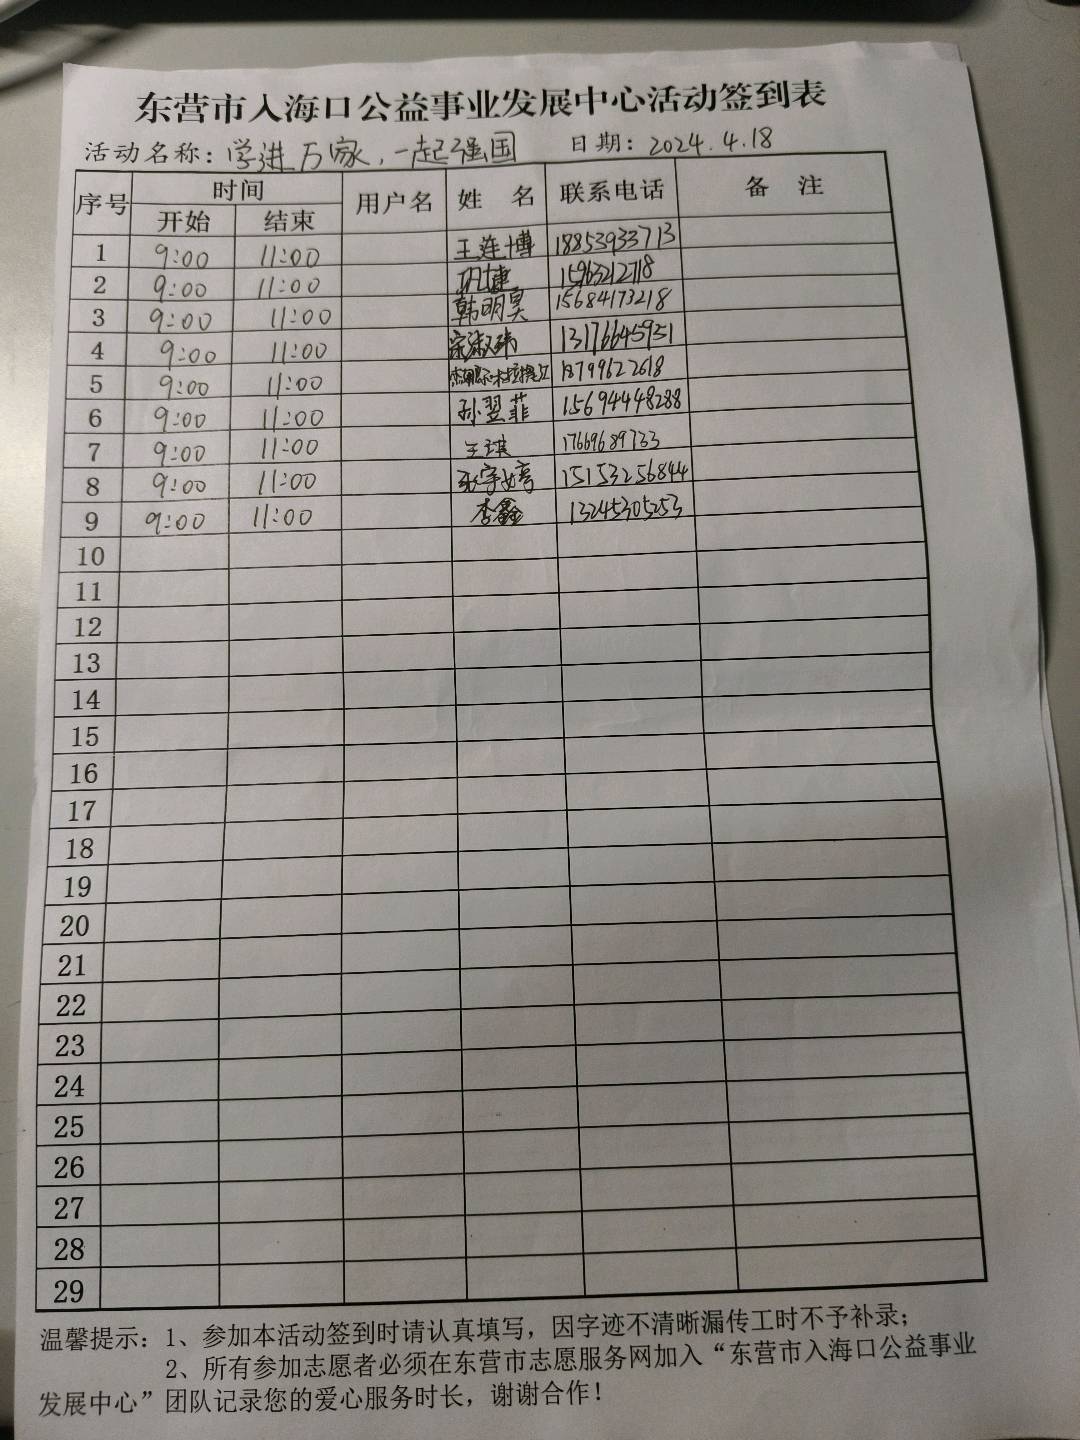 东营市入海口公益事业发展中心活动签到表
活动名称：学进万家，一起强国 日期：2024.4.18
序号 时间 用户名 姓 名 联系电话 备 注
开始 结束
1 9:00 11:00 王连博 18853933713
2 9:00 11:00 巩捷 15963212718
3 9:00 11:00 韩明昊 15684173218
4 9:00 11:00 宋淑玮 13176645951
5 9:00 11:00 18799622618
6 9:00 11:00 孙翌菲 15694448288
7 9:00 11:00 王琪 17669689733
8 9:00 11:00 张宇婷 15153256844
9 9:00 11:00 李鑫 13245305253
10
11
12
13
14
15
16
17
18
19
20
21
22
23
24
25
26
27
28
29
温馨提示：1、参加本活动签到时请认真填写，因字迹不清晰漏传工时不予补录；
2、所有参加志愿者必须在东营市志愿服务网加入“东营市入海口公益事业
发展中心”团队记录您的爱心服务时长，谢谢合作！